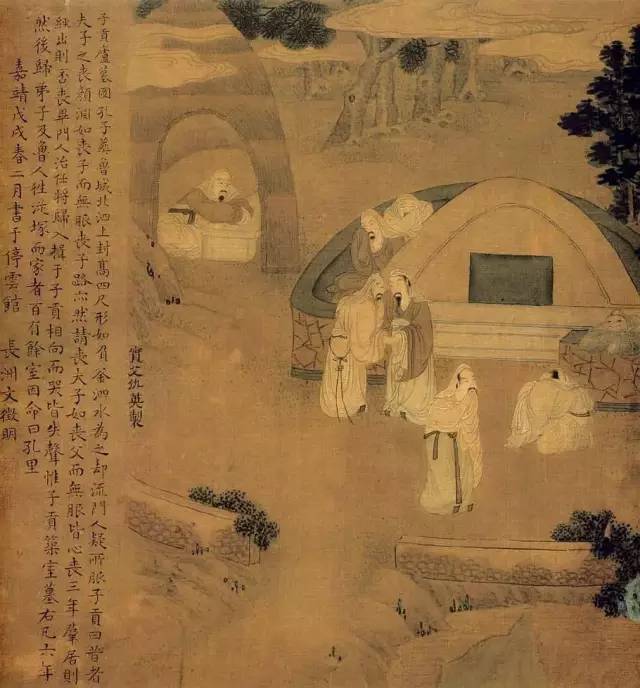 實父仇英製
子貢廬墓圖孔子葬魯城北泗上封高四尺形如負釜泗水為之却流門人疑所服子貢曰昔者
夫子之喪顏淵如喪子而無服喪子路亦然請喪夫子如喪父而無服皆心喪三年羣居則
絰出則否喪畢門人治任將歸入揖于子貢相向而哭皆失聲惟子貢築室墓右凡六年
然後歸弟子及魯人往從塚而家者百有餘室因命曰孔里
嘉靖戊戌春二月書于停雲館 長洲文徵明